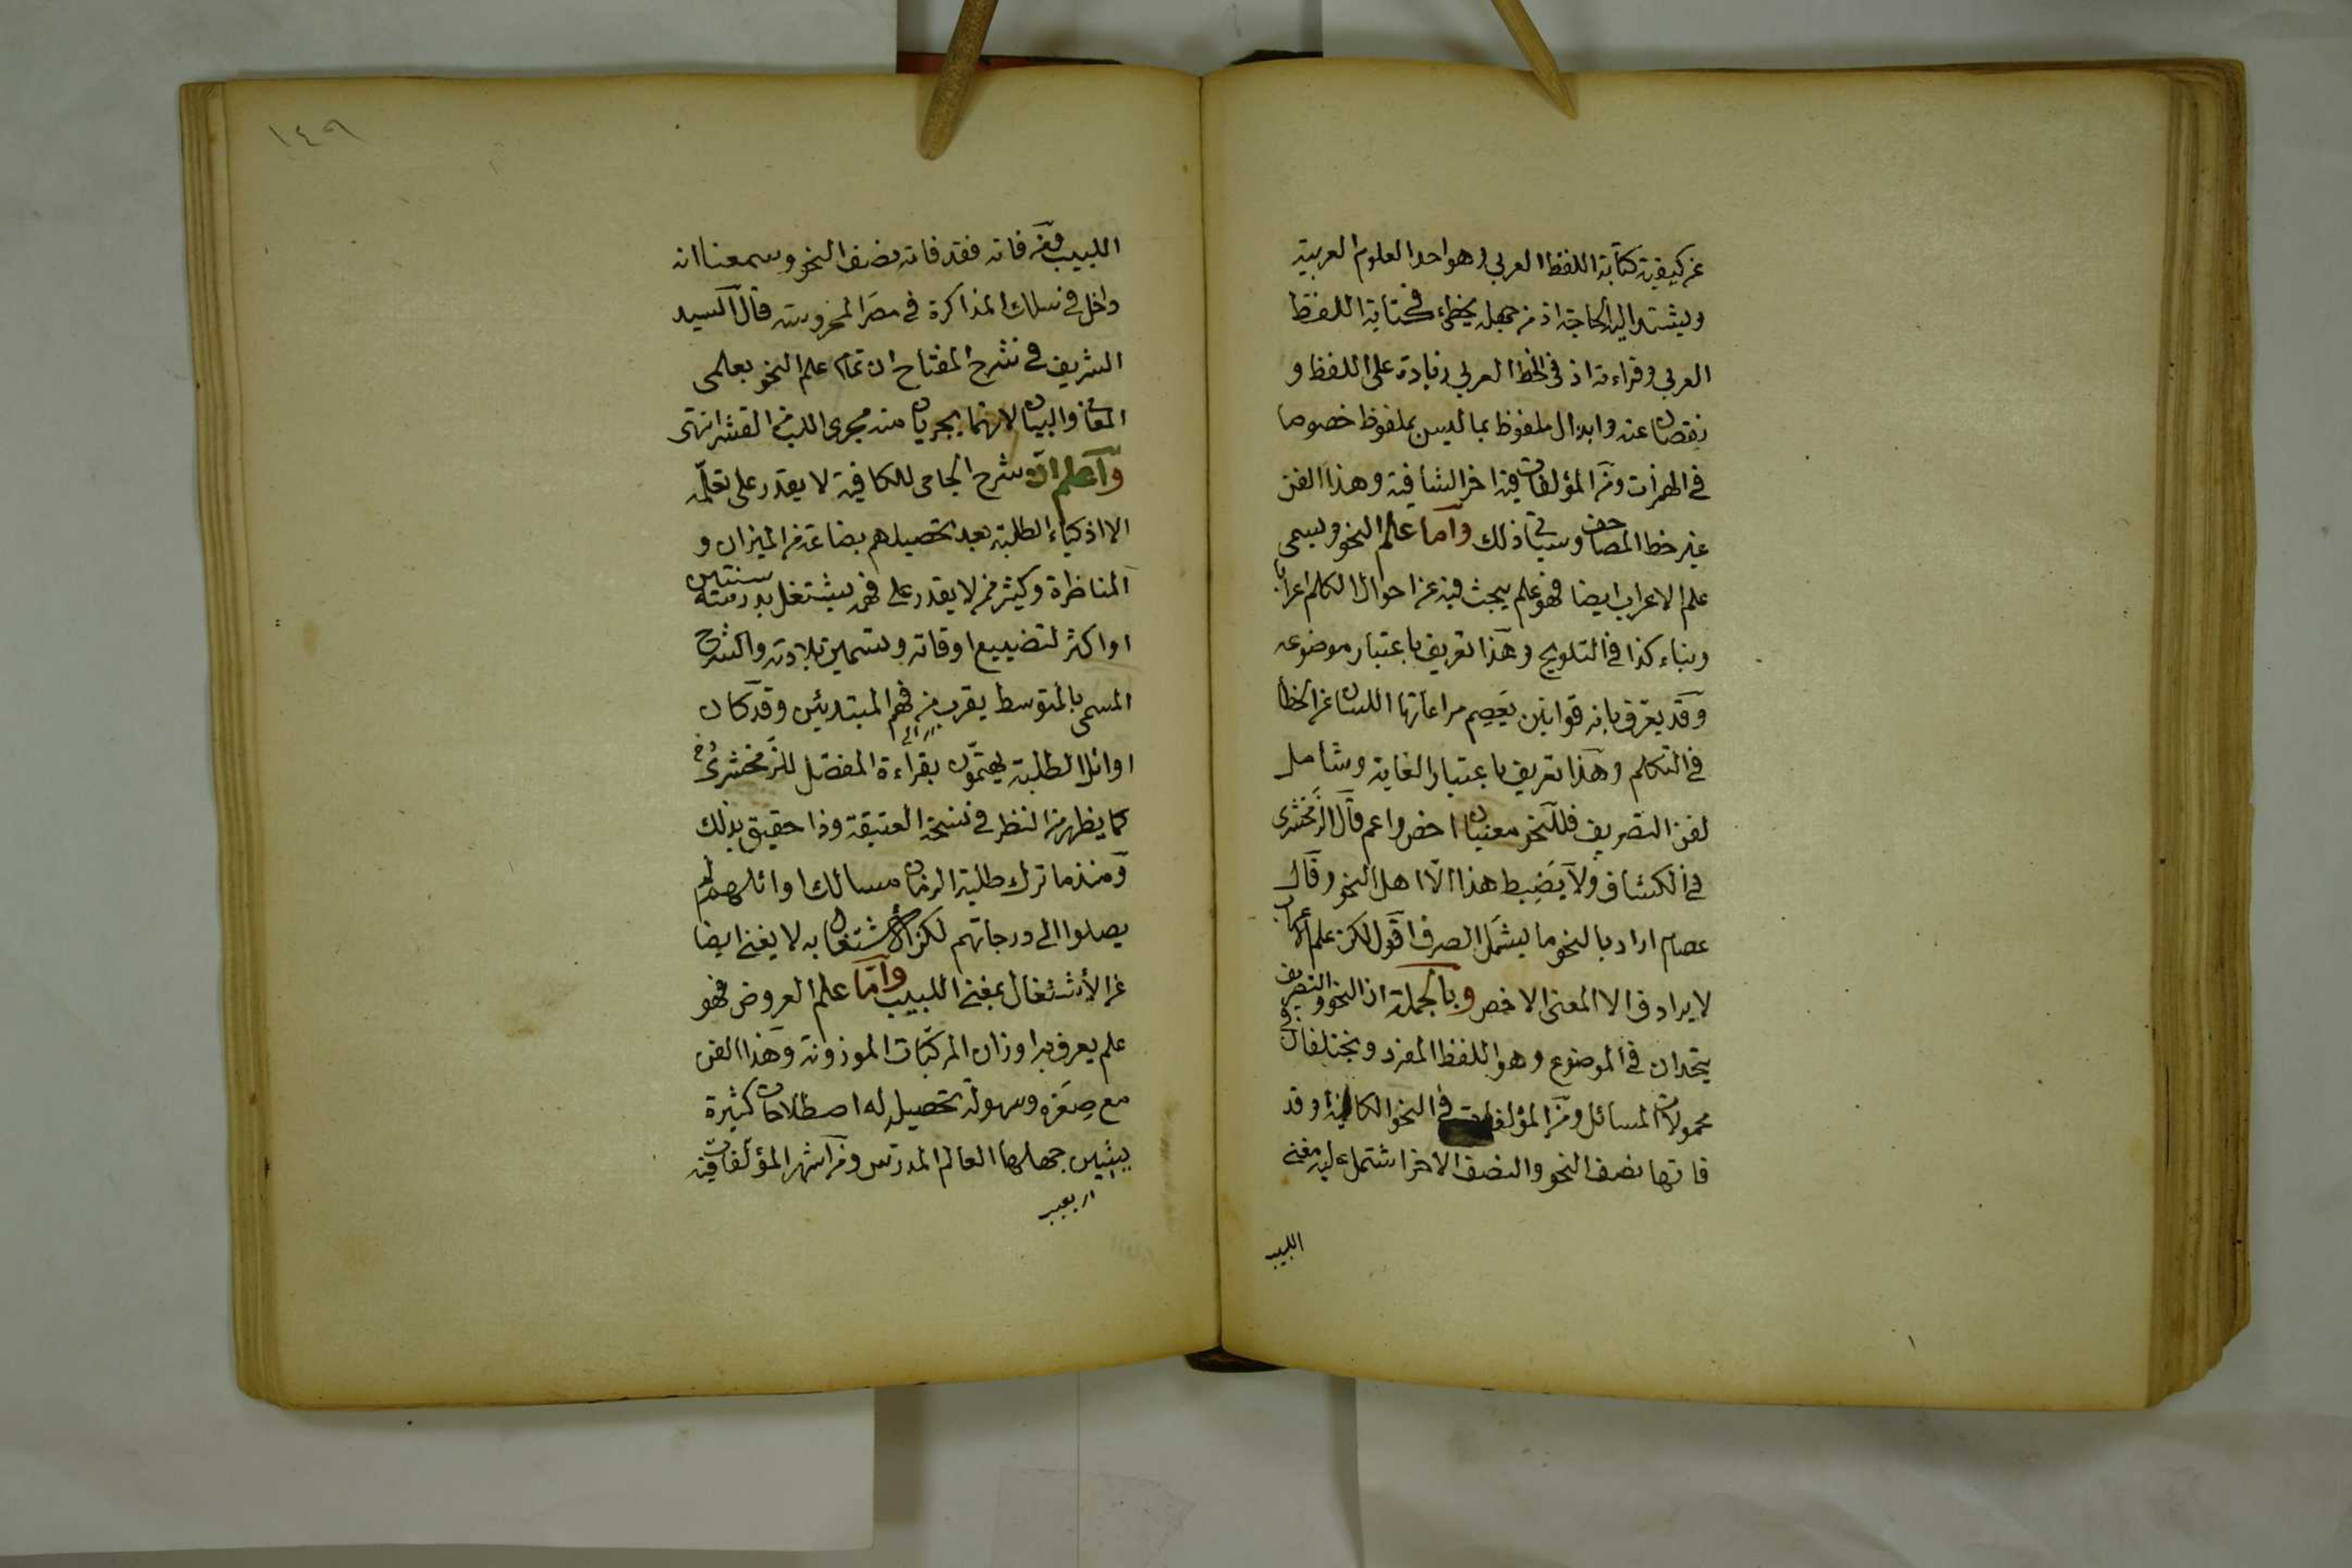 عن كيفية كتابة اللفظ العربي وهو احد العلوم العربية
ويشتد اليه الحاجة اذ من جهله يخطئ في كتابة اللفظ
العربي وقراءته اذ في الخط العربي زيادة على اللفظ و
نقصان عنه وابدال ملفوظ بما ليس بملفوظ خصوصا
في الهمزات ومن المؤلفات فيه اخر الشافية وهذا الفن
غير خط المصاحف وسيأتي ذلك وأما علم النحو ويسمى
علم الاعراب ايضا فهو علم يبحث فيه عن احوال الكلم اعرابا
وبناء كذا في التلويح وهذا تعريف باعتبار موضوعه
وقد يعرّف بانه قوانين يَعصِم مراعاتها اللسان عن الخطأ
في التكلم وهذا تعريف باعتبار الغاية وشامل
لفن التصريف فللنحو معنيان اخص واعم قال الزَمَخْشَرى
في الكشاف ولا يَضبِط هذا الّا اهل النحو وقال
عصام اراد بالنحو ما يشمَل الصرف اقول لكن علم الاعراب
لا يرادف الا المعنى الاخص وبالجملة ان النحو والتصريف
يتحدان في الموضوع وهو اللفظ المفرد ويختلفان في
محمولات المسائل ومن المؤلفات في النحو الكافية وقد
فاتها نصف النحو والنصف الاخر اشتمل عليه مغنى
اللبيب
١٤٩
اللبيب فمَن فاته فقد فاته نصف النحو وسمعنا انه
داخل في سلك المذاكرة في مصر المحروسة قال السيد
الشريف في شرح المفتاح ان تمام علم النحو بعلمى
المعاني والبيان لانهما يجريان منه مجرى اللب من القشر انتهى
وآعلم ان شرح الجامى للكافية لا يقدر على تعلّمه
الا اذكياء الطلبة بعد تحصيلهم بضاعة من الميزان و
المناظرة وكثير ممن لا يقدر على فهمه يشتغل بدرسته سنتين
او اكثر لتضييع اوقاته وتسمين بلادته والشرح
المسمى بالمتوسط يقرب من فهم المبتدئين وقد كان
اوائل الطلبة يهتمّون بقراءة المفصّل للزَمخشرىّ
كما يظهر من النظر في نسخه العتيقة وذا حقيق بذلك
ومنذ ما ترك طلبة الزمان مسالك اوائلهم لم
يصلوا الى درجاتهم لكن الاشتغال به لا يغنى ايضا
عن الأشتغال بمغنى اللبيب وأمّا علم العروض فهو
علم يعرف به اوزان المركبات الموزونة وهذا الفن
مع صِغَره وسهولة تحصيله له اصطلاحات كثيرة
يشين جهلها العالم المدرّس ومن اشهر المؤلفات فيه